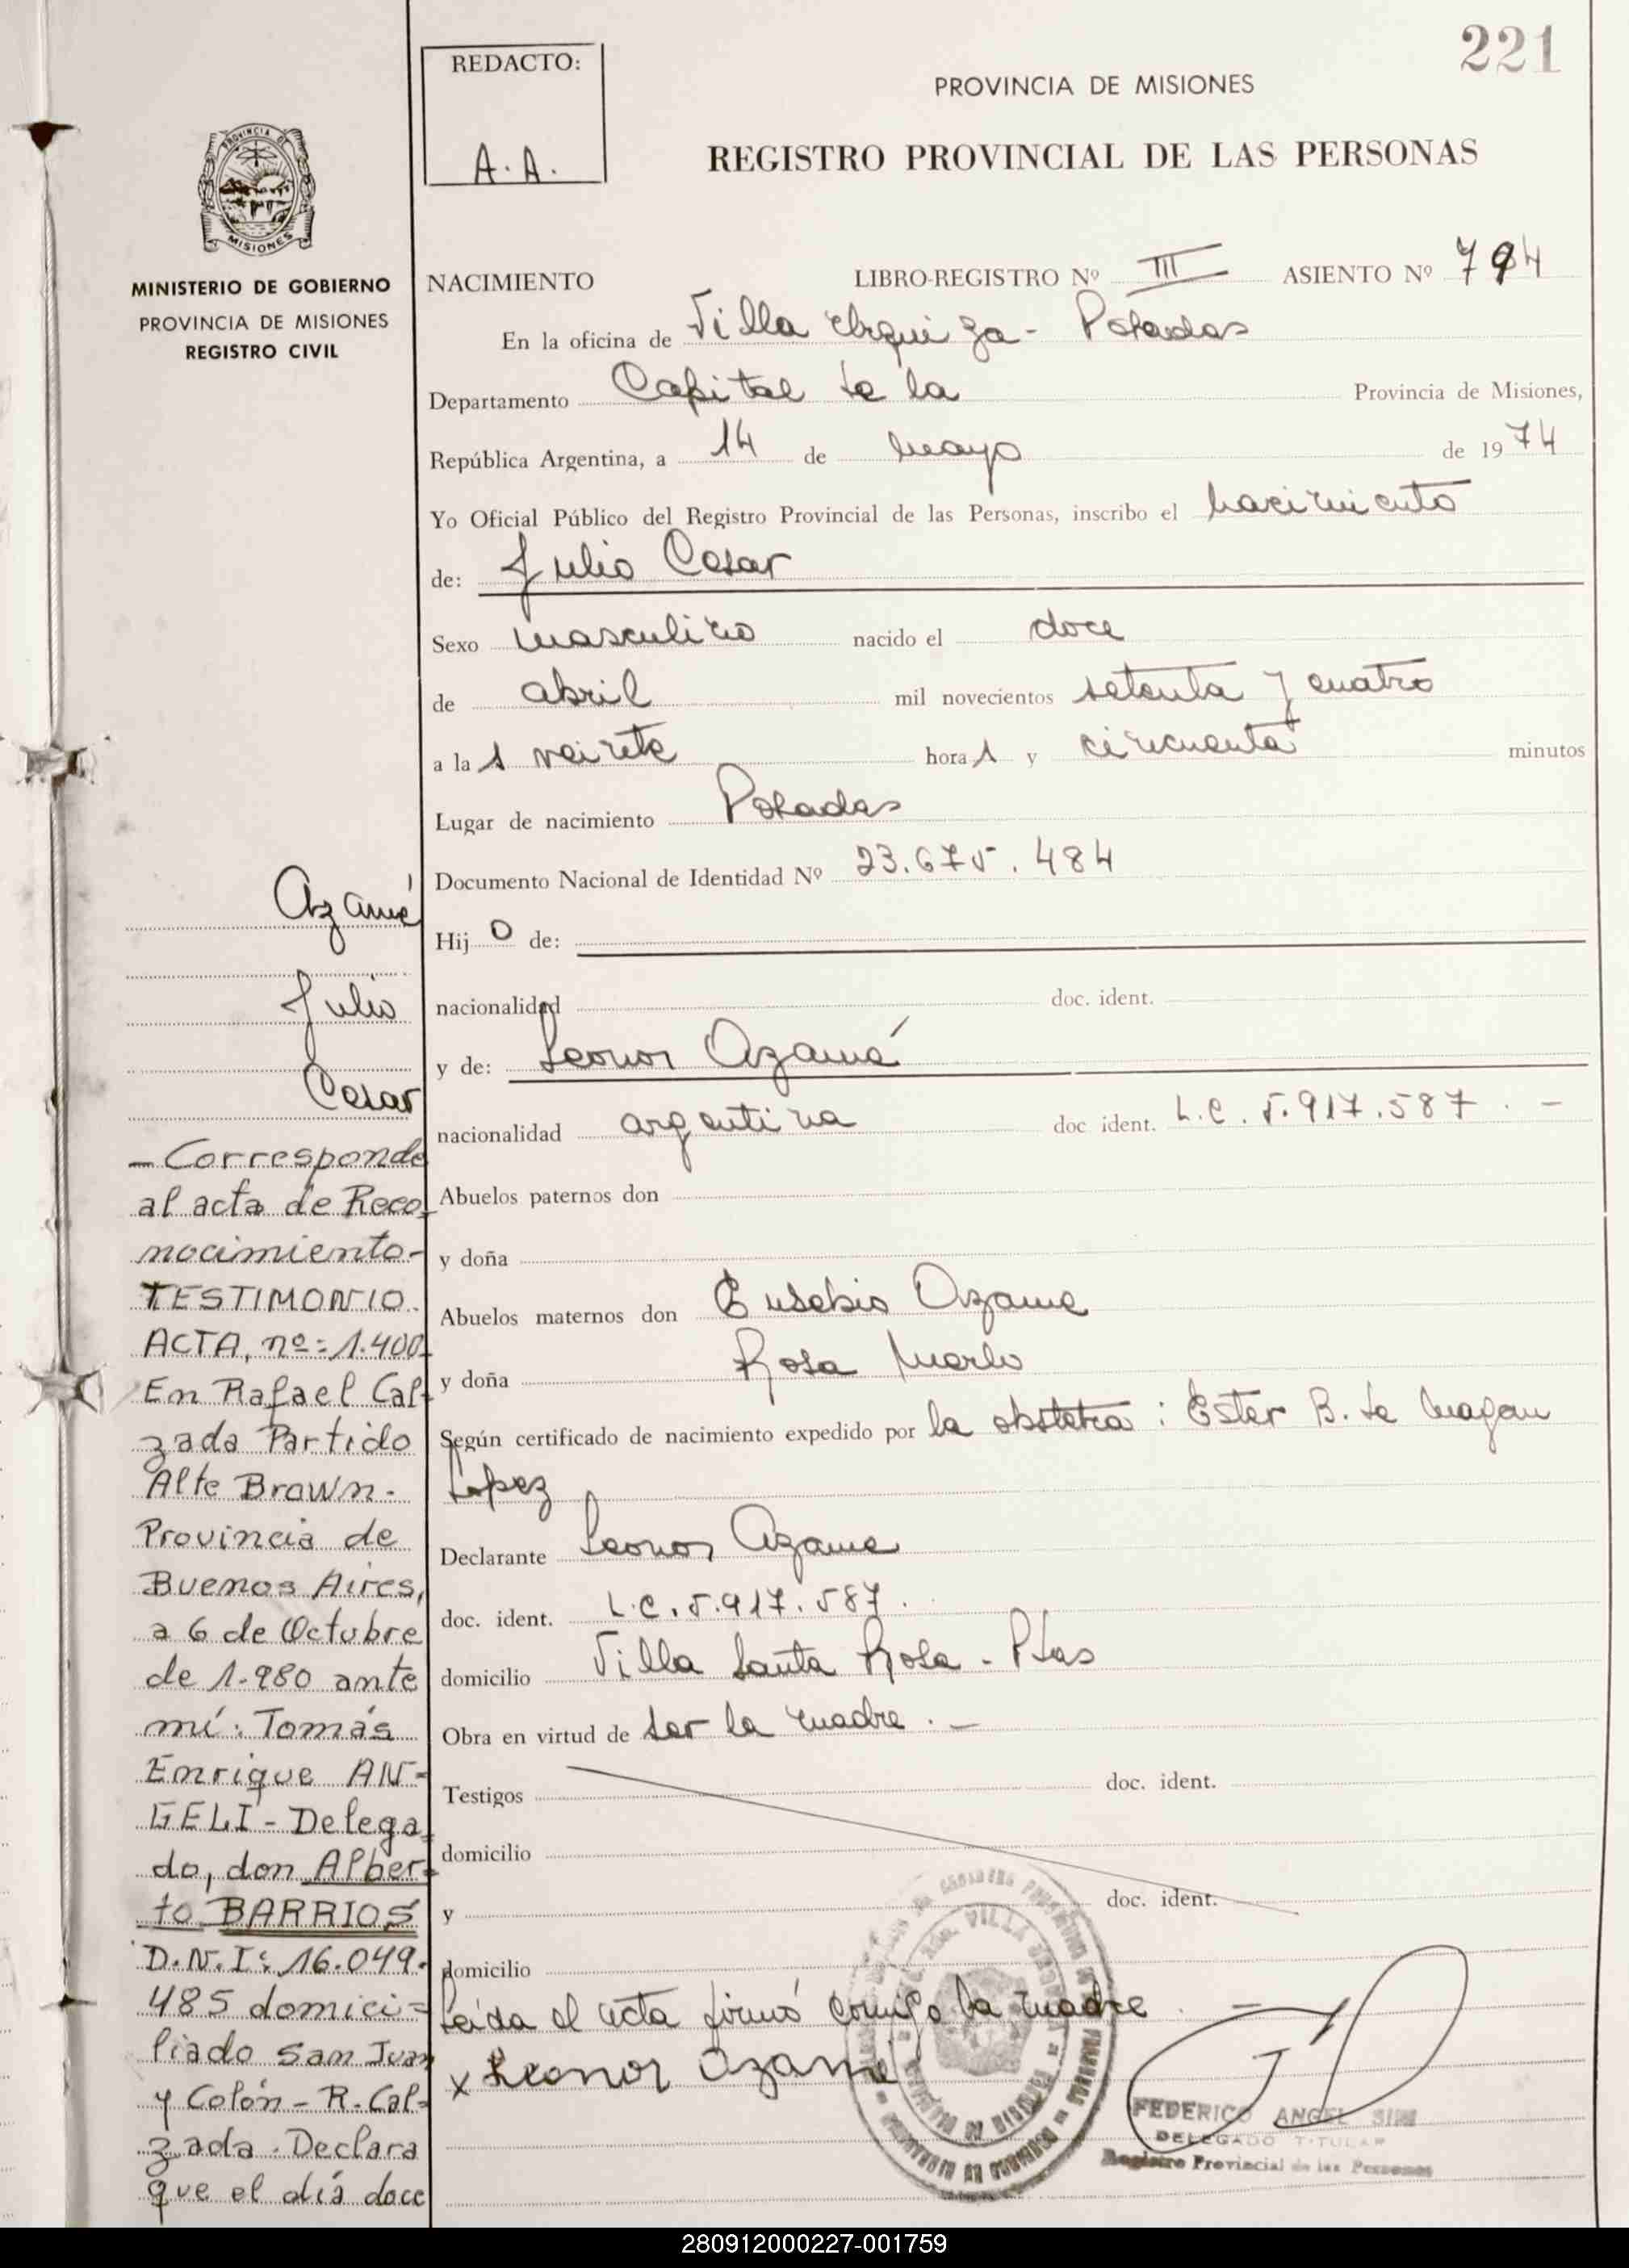 221
REDACTO:
A.A.
PROVINCIA DE MISIONES
REGISTRO PROVINCIAL DE LAS PERSONAS
PROVINCIA DE
MISIONES
MINISTERIO DE GOBIERNO
PROVINCIA DE MISIONES
REGISTRO CIVIL
NACIMIENTO LIBRO-REGISTRO Nº III ASIENTO Nº 794
En la oficina de Villa Urquiza - Posadas
Departamento Capital de la Provincia de Misiones,
República Argentina, a 14 de mayo de 1974
Yo Oficial Público del Registro Provincial de las Personas, inscribo el nacimiento
de: Julio Cesar
Sexo masculino nacido el doce
de abril mil novecientos setenta y cuatro
a la s veinte hora s y cincuenta minutos
Lugar de nacimiento Posadas
Documento Nacional de Identidad Nº 23.675.484
Hij o de:
nacionalidad doc. ident.
y de: Leonor Azamé
nacionalidad argentina doc ident. L.C. 5.917.587.-
Abuelos paternos don
y doña
Abuelos maternos don Eusebio Azame
y doña Rosa Merlo
Según certificado de nacimiento expedido por la obstetra: Ester B. de
López
Declarante Leonor Azame
doc. ident. L.C. 5.917.587.
domicilio Villa Santa Rosa - Pdas
Obra en virtud de ser la madre.-
Testigos doc. ident.
domicilio
y doc. ident.
domicilio
Leída el acta firmó conmigo la madre.-
x Leonor Azame
FEDERICO ANGEL
DELEGADO TITULAR
Registro Provincial de las Personas
Azamé
Julio
Cesar
- Corresponde
al acta de Reco
nocimiento-
TESTIMONIO.
ACTA, nº=1.400
En Rafael Cal-
zada Partido
Alte Brown-
Provincia de
Buenos Aires,
a 6 de Octubre
de 1.980 ante
mí: Tomás
Enrique AN-
GELI - Delega
do, don Alber-
to BARRIOS
D.N.I: 16.049.
485 domici-
liado San Juan
y Colón - R. Cal-
zada. Declara
que el día doce
280912000227-001759